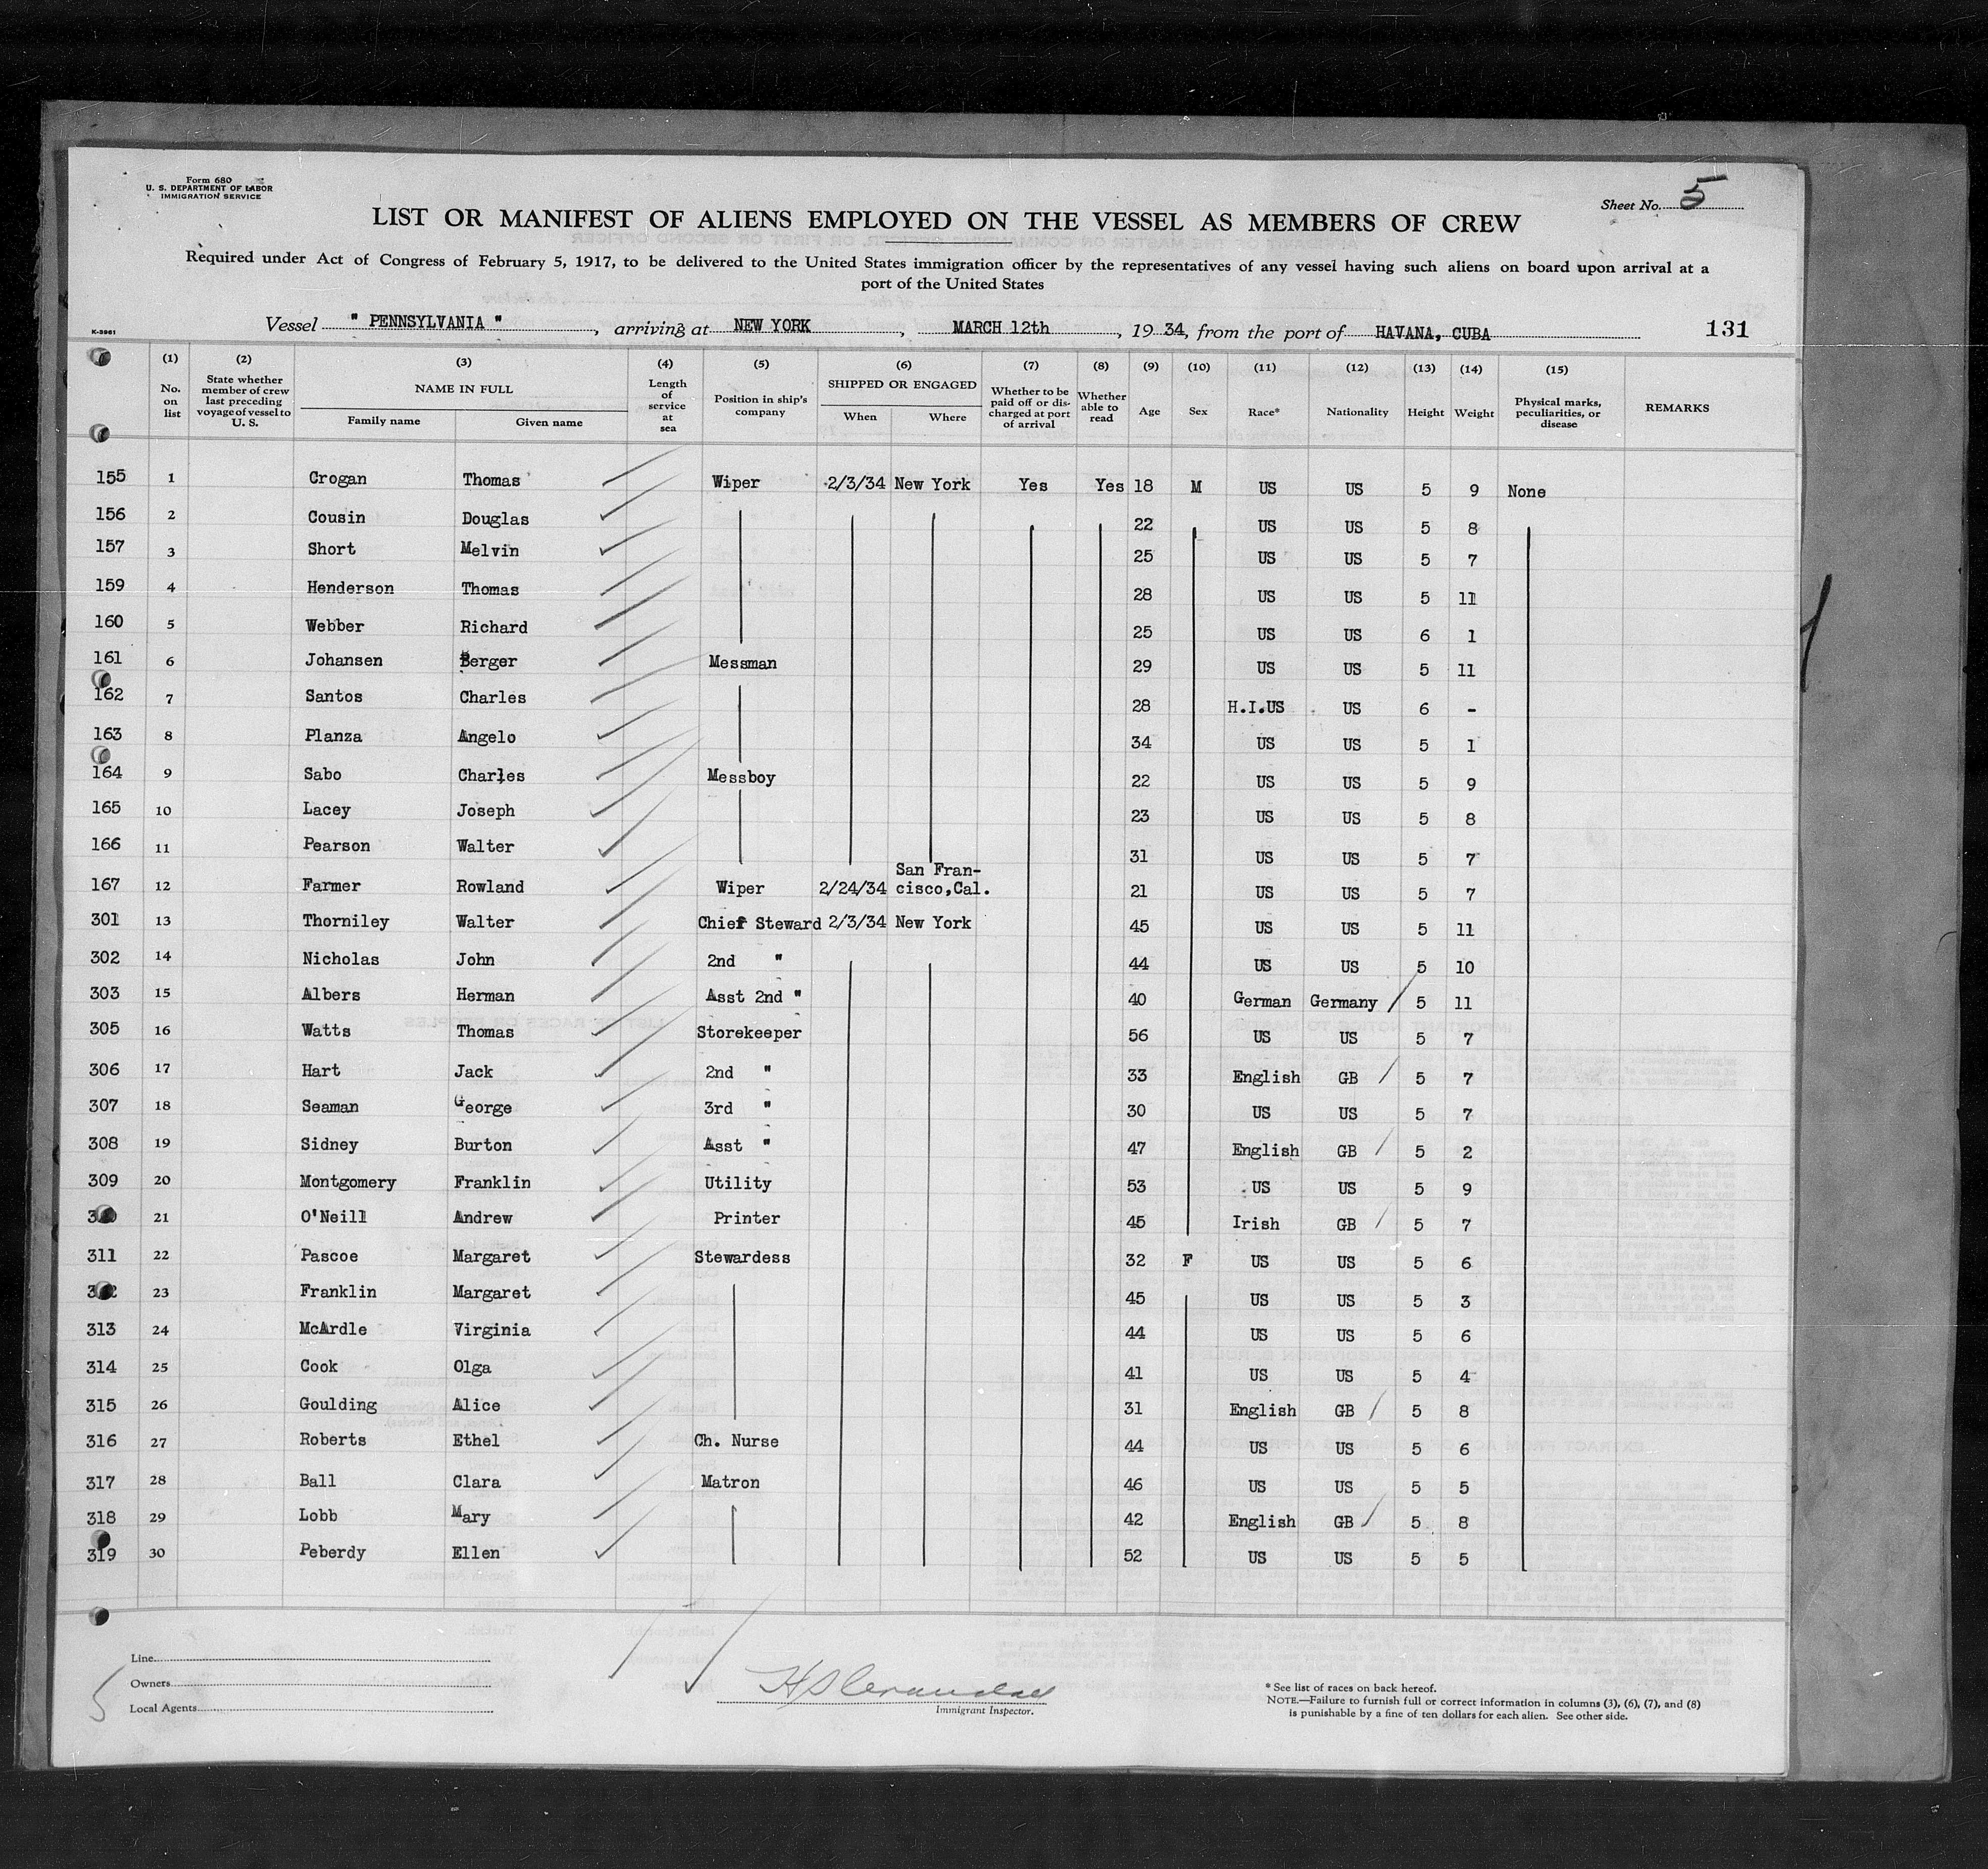 Form 680
U. S. DEPARTMENT OF LABOR
IMMIGRATION SERVICE
Sheet No. 5
LIST OR MANIFEST OF ALIENS EMPLOYED ON THE VESSEL AS MEMBERS OF CREW
Required under Act of Congress of February 5, 1917, to be delivered to the United States immigration officer by the representatives of any vessel having such aliens on board upon arrival at a
port of the United States
K-3961
Vessel " PENNSYLVANIA ", arriving at NEW YORK, MARCH 12th, 19 34, from the port of HAVANA, CUBA 131
(1) (2) (3) (4) (5) (6) (7) (8) (9) (10) (11) (12) (13) (14) (15)
No. on list
State whether member of crew last preceding voyage of vessel to U. S.
NAME IN FULL
Family name Given name
Length of service at sea
Position in ship's company
SHIPPED OR ENGAGED
When Where
Whether to be paid off or discharged at port of arrival
Whether able to read
Age Sex Race* Nationality Height Weight
Physical marks, peculiarities, or disease
REMARKS
155 1 Crogan Thomas Wiper 2/3/34 New York Yes Yes 18 M US US 5 9 None
156 2 Cousin Douglas 22 US US 5 8
157 3 Short Melvin 25 US US 5 7
159 4 Henderson Thomas 28 US US 5 11
160 5 Webber Richard 25 US US 6 1
161 6 Johansen Berger Messman 29 US US 5 11
162 7 Santos Charles 28 H.I.US US 6 -
163 8 Planza Angelo 34 US US 5 1
164 9 Sabo Charles Messboy 22 US US 5 9
165 10 Lacey Joseph 23 US US 5 8
166 11 Pearson Walter 31 US US 5 7
167 12 Farmer Rowland Wiper 2/24/34 San Fran-cisco,Cal. 21 US US 5 7
301 13 Thorniley Walter Chief Steward 2/3/34 New York 45 US US 5 11
302 14 Nicholas John 2nd " 44 US US 5 10
303 15 Albers Herman Asst 2nd " 40 German Germany 5 11
305 16 Watts Thomas Storekeeper 56 US US 5 7
306 17 Hart Jack 2nd " 33 English GB 5 7
307 18 Seaman George 3rd " 30 US US 5 7
308 19 Sidney Burton Asst " 47 English GB 5 2
309 20 Montgomery Franklin Utility 53 US US 5 9
21 O'Neill Andrew Printer 45 Irish GB 5 7
311 22 Pascoe Margaret Stewardess 32 F US US 5 6
23 Franklin Margaret 45 US US 5 3
313 24 McArdle Virginia 44 US US 5 6
314 25 Cook Olga 41 US US 5 4
315 26 Goulding Alice 31 English GB 5 8
316 27 Roberts Ethel Ch. Nurse 44 US US 5 6
317 28 Ball Clara Matron 46 US US 5 5
318 29 Lobb Mary 42 English GB 5 8
319 30 Peberdy Ellen 52 US US 5 5
Line
Owners
Local Agents
5
Immigrant Inspector.
* See list of races on back hereof.
NOTE.—Failure to furnish full or correct information in columns (3), (6), (7), and (8)
is punishable by a fine of ten dollars for each alien. See other side.